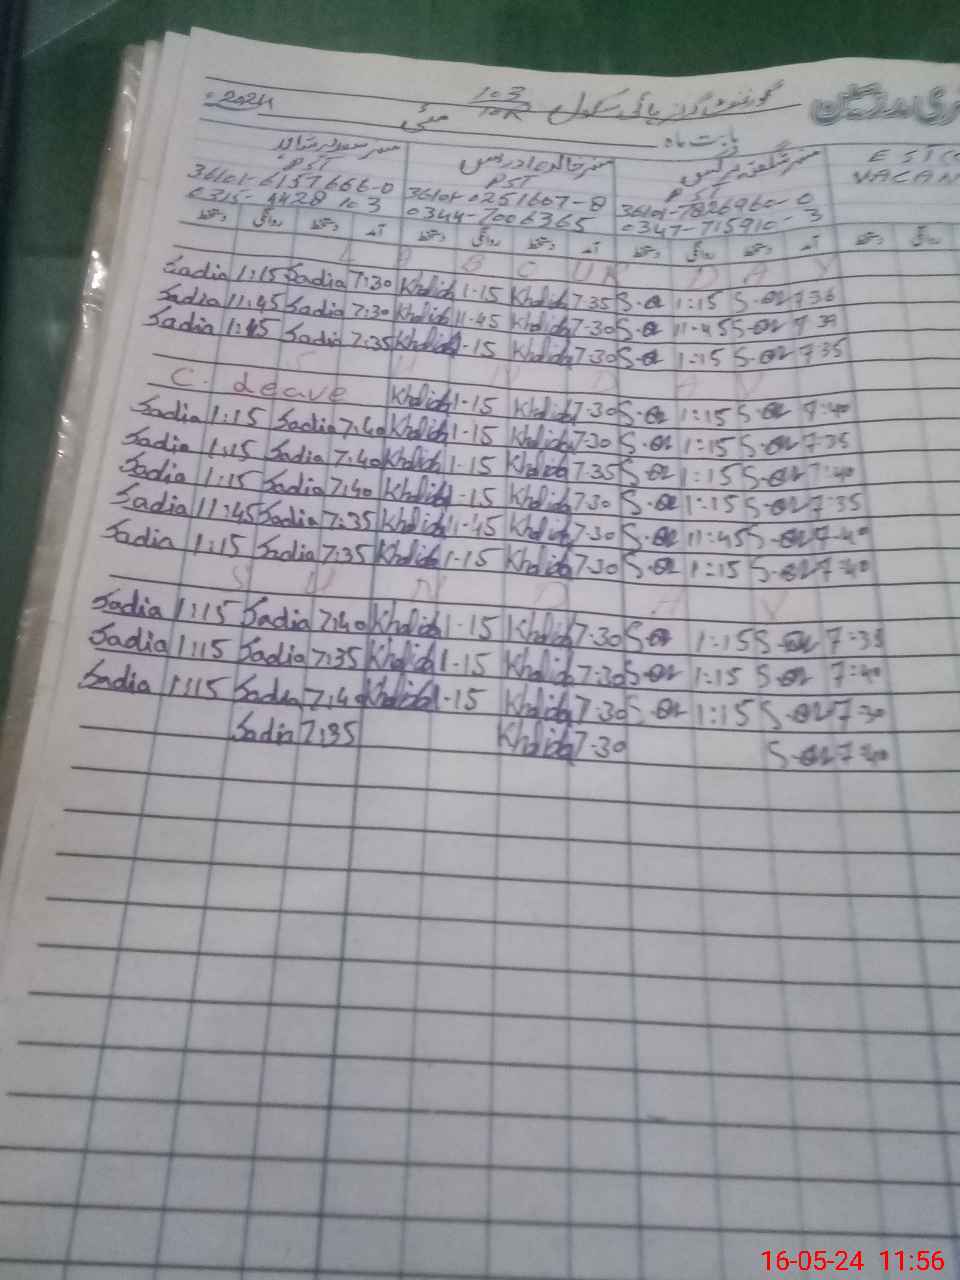 گورنمنٹ گرلز ہائی سکول 103/10R
بابت ماہ مئی 2024
مسز شگفتہ نرگس مسز خالدہ ادریس
PST PST PST ESTC
36101-6157666-0 36101-0251607-8 36101-7826960-0 VACAN
0315-4428103 0344-7006365 0347-715910-3
دستخط روانگی دستخط آمد دستخط روانگی دستخط آمد دستخط روانگی دستخط آمد دستخط روانگی
L A B O U R D A Y
Sadia 1:15 Sadia 7:30 Khalida 1-15 Khalida 7:35 1:15 7:36
Sadia 11:45 Sadia 7:30 Khalida 11-45 Khalida 7-30 11-45 7:30
Sadia 1:45 Sadia 7:35 Khalida 1-15 Khalida 7:30 1:15 7:35
S U N D A Y
C. Leave Khalida 1-15 Khalida 7:30 1:15 7:40
Sadia 1:15 Sadia 7:40 Khalida 1-15 Khalida 7:30 1:15 7:35
Sadia 1:15 Sadia 7:40 Khalida 1-15 Khalida 7:35 1:15 7:40
Sadia 1:15 Sadia 7:40 Khalida 1-15 Khalida 7:30 1:15 7:35
Sadia 11:45 Sadia 7:35 Khalida 11-45 Khalida 7:30 11:45 7-40
Sadia 1:15 Sadia 7:35 Khalida 1-15 Khalida 7:30 1:15 7:40
S U N D A Y
Sadia 1:15 Sadia 7:40 Khalida 1-15 Khalida 7:30 1:15 7:35
Sadia 1:15 Sadia 7:35 Khalida 1-15 Khalida 7:30 1:15 7:40
Sadia 1:15 Sadia 7:40 Khalida 1-15 Khalida 7:30 1:15 7:30
Sadia 7:35 Khalida 7-30 7:40
16-05-24 11:56